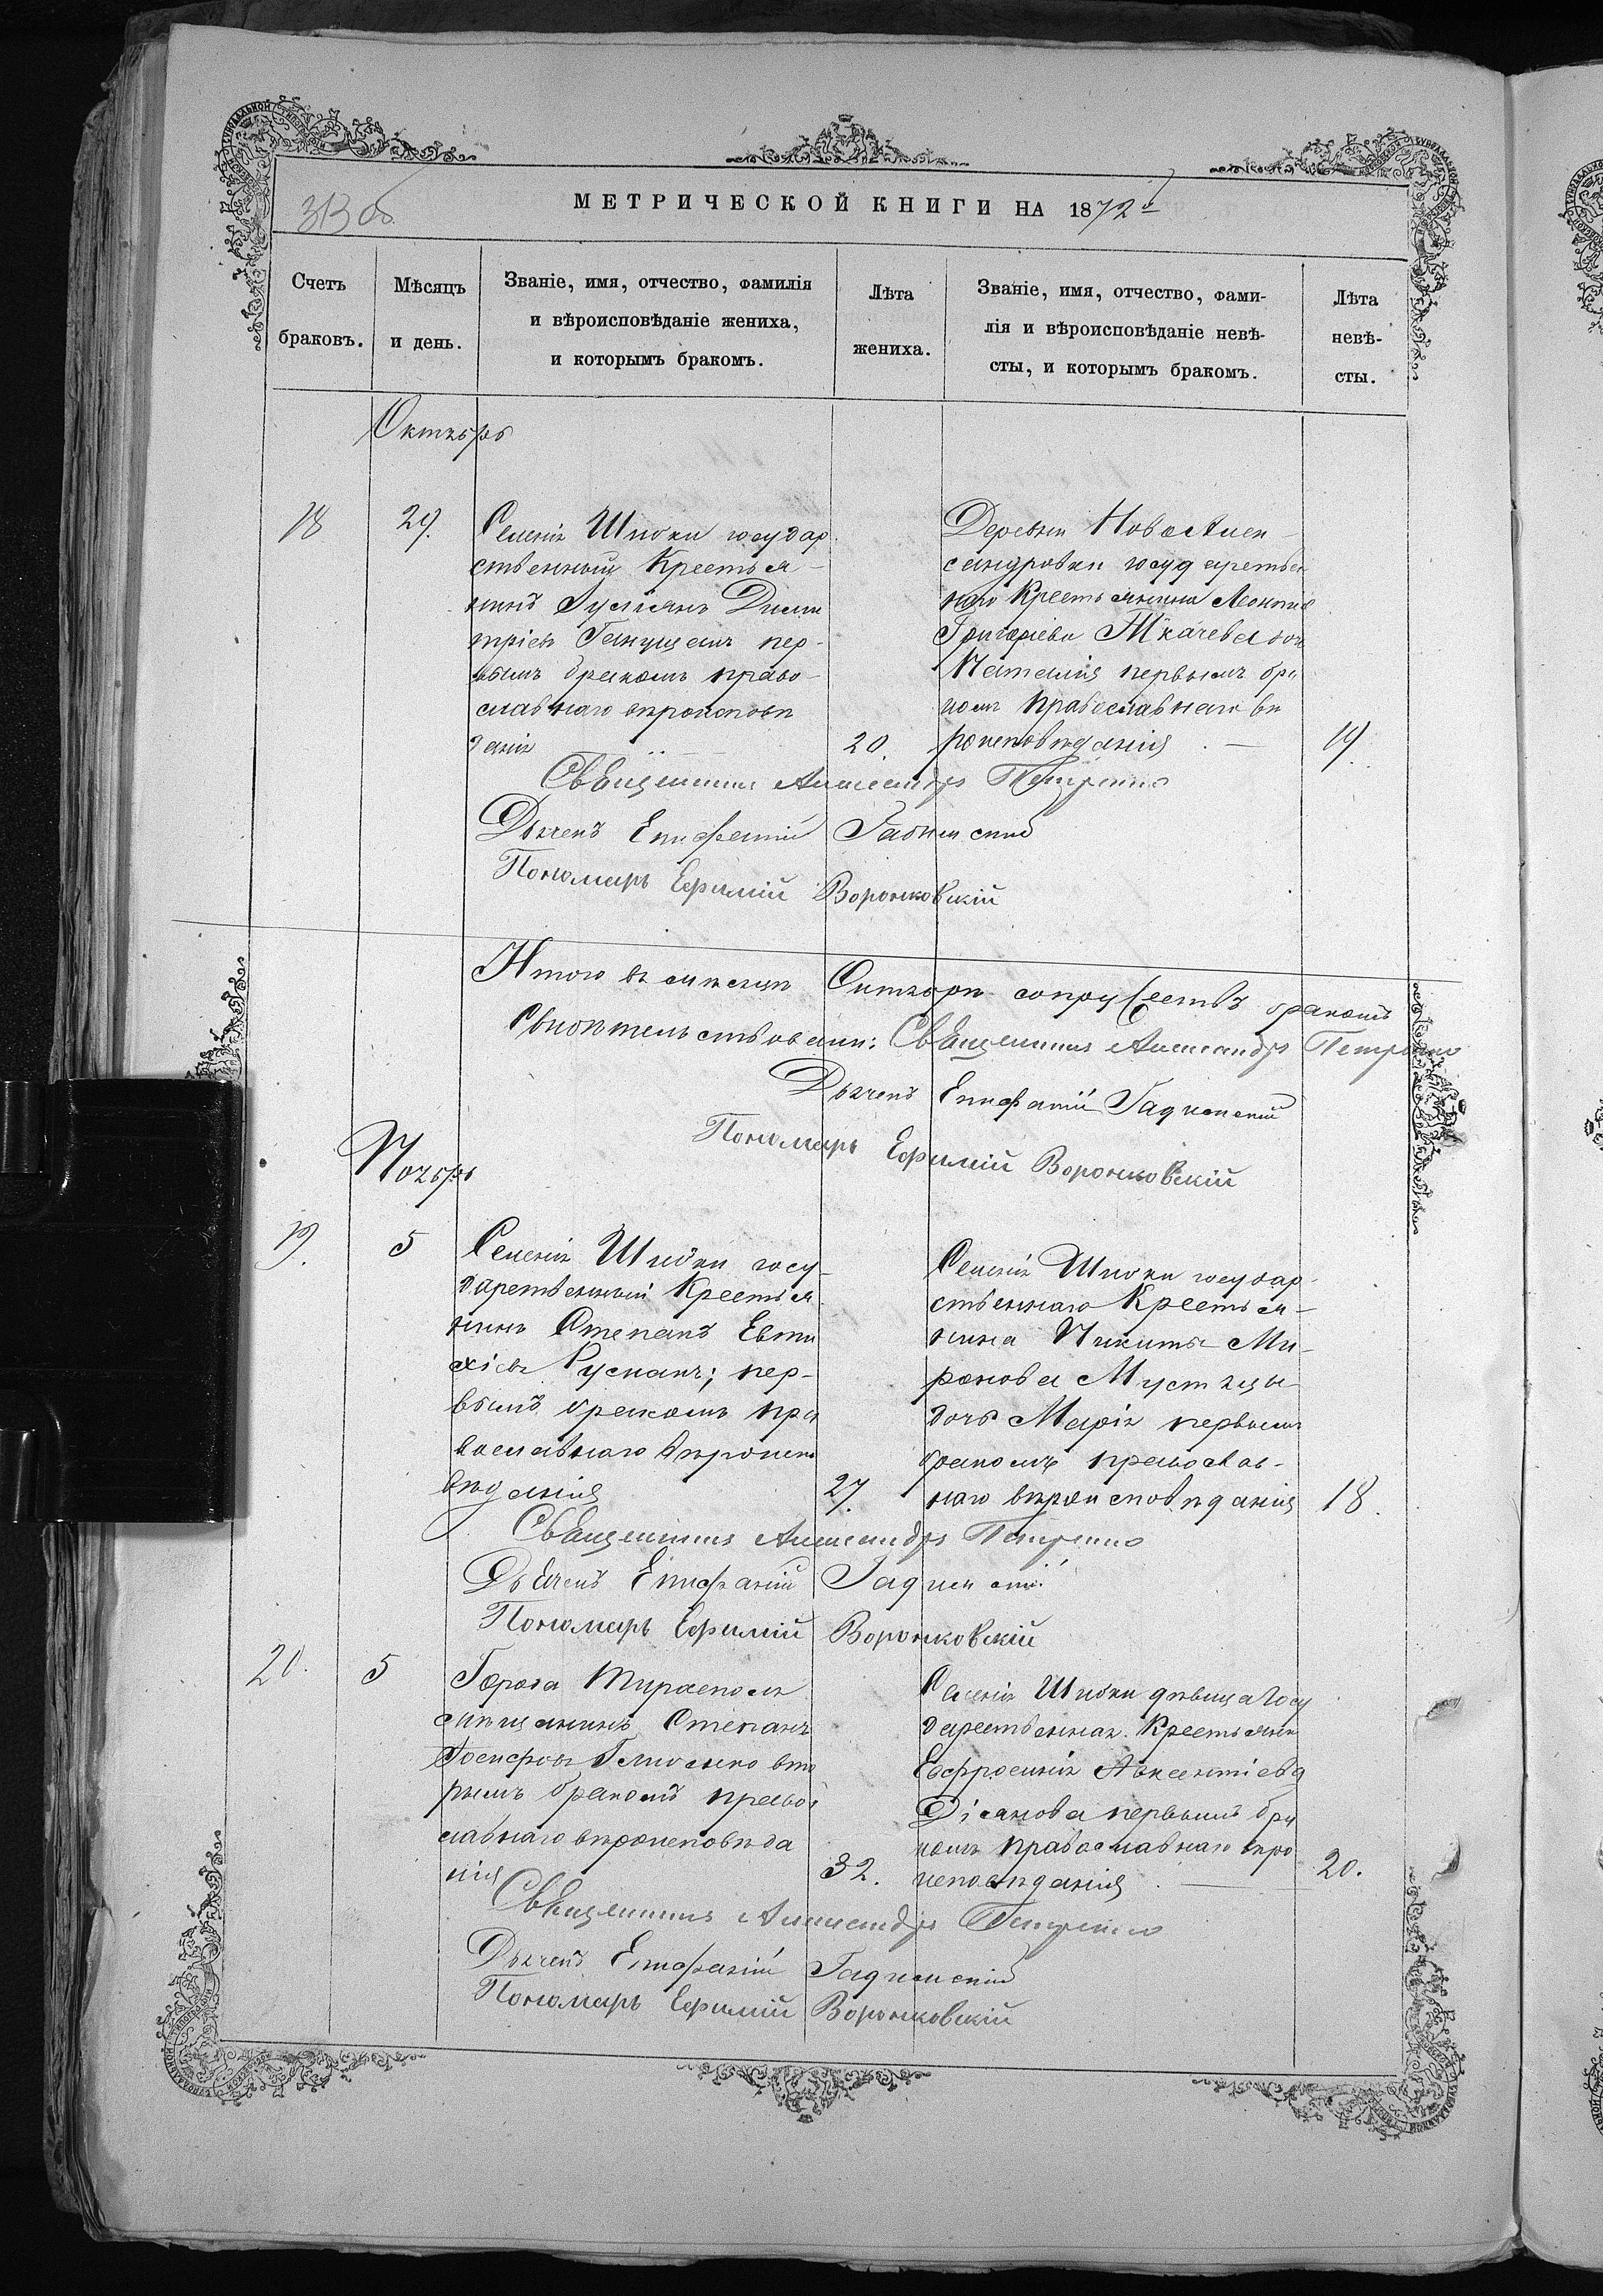 313 об.
МЕТРИЧЕСКОЙ КНИГИ НА 1872 г
Счетъ браковъ.
Мѣсяцъ и день.
Званіе, имя, отчество, фамилія
и вѣроисповѣданіе жениха,
и которымъ бракомъ.
Лѣта жениха.
Званіе, имя, отчество, фами-
лія и вѣроисповѣданіе невѣ-
сты, и которымъ бракомъ.
Лѣта невѣ-
сты.
Октябрь
18
29.
Селенія Шибки государ
ственный Крестья-
нинъ Лукіянъ Дими
тріевъ пер-
вымъ бракомъ право-
славнаго вѣроисповѣ
данія
20.
Деревни НовоАлек-
сандровки государствен
наго Крестьянина Леонтія
Григоріева Ткачева дочь
Наталія первымъ бра
комъ православнаго вѣ
роисповѣданія
19.
Священникъ Александръ Петренко
Дьячекъ Епифаній
Пономарь Ефимій Воронковскій
Итого въ мѣсяцѣ Октябрѣ бракомъ
Свидѣтельствовали: Священникъ Александръ Петренко
Дьячекъ Епифаній Гадзинскій
Пономарь Ефимій Воронковскій
Ноябрь
19.
5
Селенія Шибки госу-
дарственный Крестья
нинъ Степанъ Евти
хіевъ Руснакъ; пер-
вымъ бракомъ пра
вославнаго вѣроиспо
вѣданія
27.
Селенія Шибки государ-
ственнаго Крестья-
нина Никиты Ми-
ронова Мустяцы
дочь Марія первымъ
бракомъ православ-
наго вѣроисповѣданія
18.
Священникъ Александръ Петренко
Дьячекъ Епифаній
Пономарь Ефимій Воронковскій
20.
5
Города Тирасполя
мѣщанинъ Степанъ
Іосифовъ вто
рымъ бракомъ правос
лавнаго вѣроисповѣда
нія
32.
Селенія Шибки дѣвица Госу
дарственная Крестьянка
Евфросинія Авксентіева
Діанова первымъ бра
комъ православнаго вѣро
исповѣданія
20.
Священникъ Александръ Петренко
Дьячекъ Епифаній Гадзинскій
Пономарь Ефимій Воронковскій